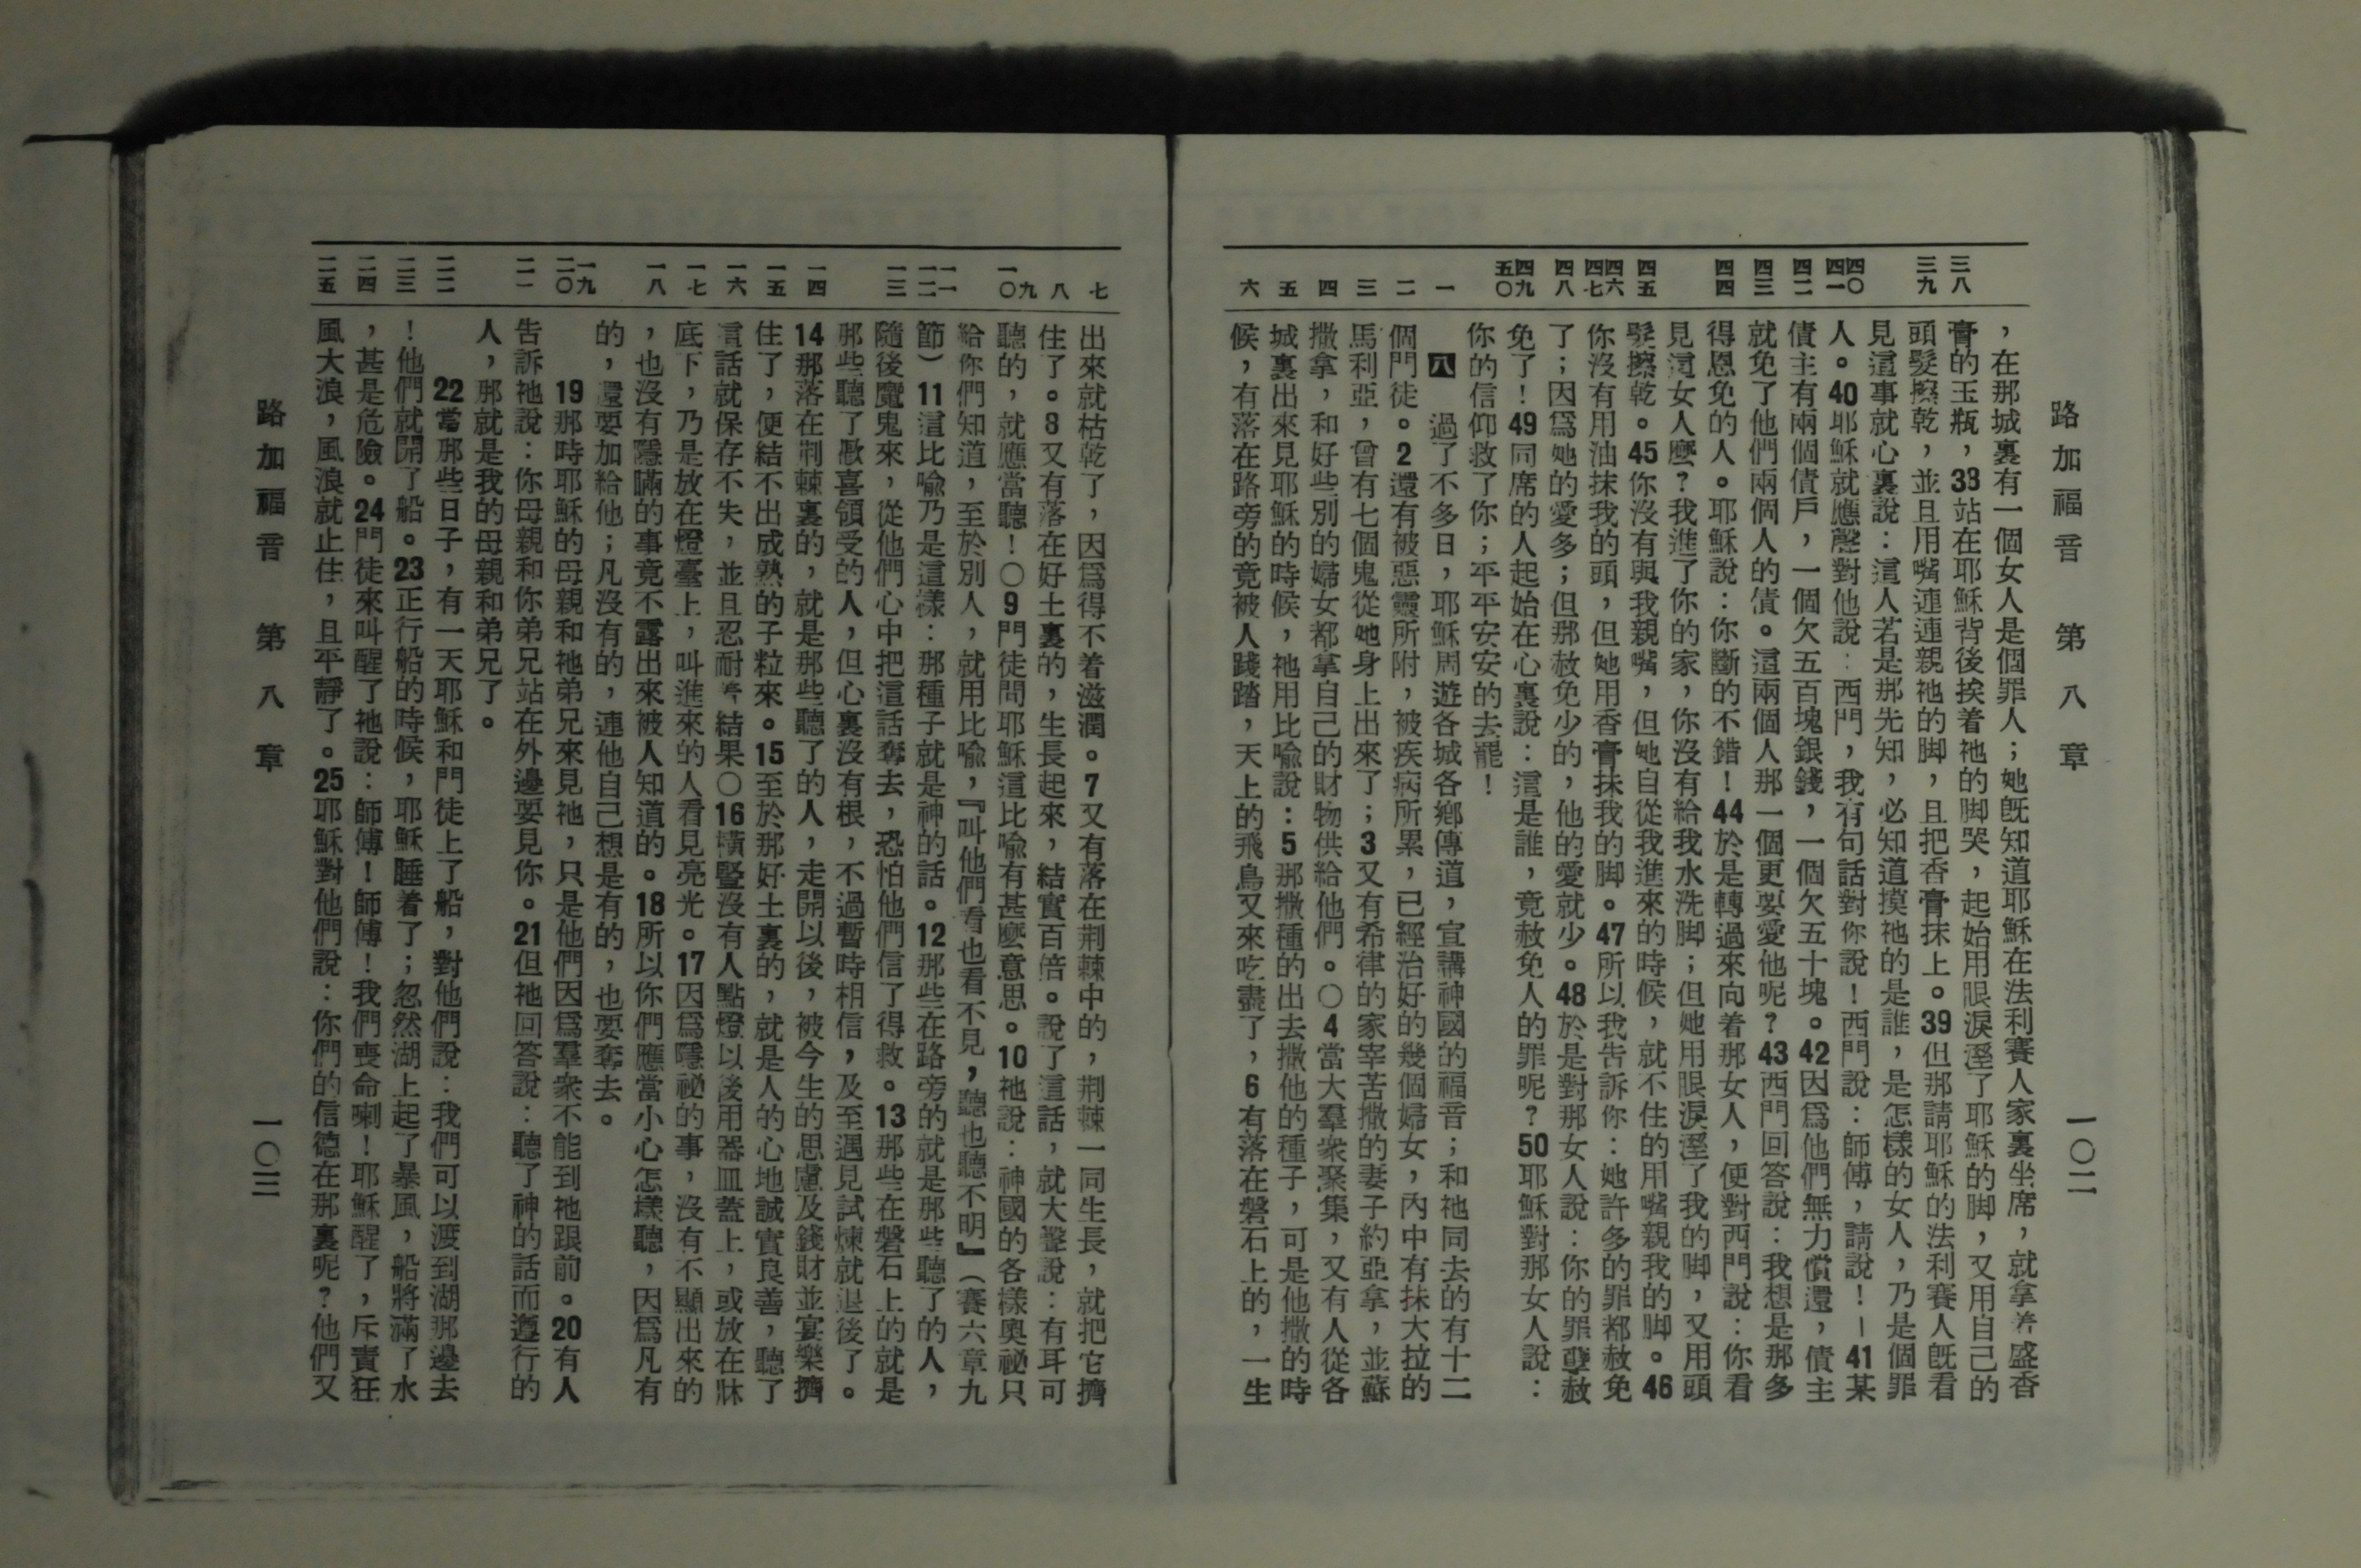 路加福音 第八章 一〇二
三八
三九
四〇
四一
四二
四三
四四
四五
四六
四七
四八
四九
五〇
一
二
三
四
五
六
，在那城裏有一個女人是個罪人；她旣知道耶穌在法利賽人家裏坐席，就拿着盛香
膏的玉瓶，38站在耶穌背後挨着祂的脚哭，起始用眼淚溼了耶穌的脚，又用自己的
頭髮擦乾，並且用嘴連連親祂的脚，且把香膏抹上。39但那請耶穌的法利賽人旣看
見這事就心裏說：這人若是那先知，必知道摸祂的是誰，是怎樣的女人，乃是個罪
人。40耶穌就應聲對他說：西門，我有句話對你說！西門說：師傅，請說！—41某
債主有兩個債戶，一個欠五百塊銀錢，一個欠五十塊。42因爲他們無力償還，債主
就免了他們兩個人的債。這兩個人那一個更要愛他呢？43西門回答說：我想是那多
得恩免的人。耶穌說：你斷的不錯！44於是轉過來向着那女人，便對西門說：你看
見這女人麼？我進了你的家，你沒有給我水洗脚；但她用眼淚溼了我的脚，又用頭
髮擦乾。45你沒有與我親嘴，但她自從我進來的時候，就不住的用嘴親我的脚。46
你沒有用油抹我的頭，但她用香膏抹我的脚。47所以我告訴你：她許多的罪都赦免
了；因爲她的愛多；但那赦免少的，他的愛就少。48於是對那女人說：你的罪孽赦
免了！49同席的人起始在心裏說：這是誰，竟赦免人的罪呢？50耶穌對那女人說：
你的信仰救了你；平平安安的去罷！
八 過了不多日，耶穌周遊各城各鄉傳道，宣講神國的福音；和祂同去的有十二
個門徒。2還有被惡靈所附，被疾病所累，已經治好的幾個婦女，內中有抹大拉的
馬利亞，曾有七個鬼從她身上出來了；3又有希律的家宰苦撒的妻子約亞拿，並蘇
撒拿，和好些別的婦女都拿自己的財物供給他們。〇4當大羣衆聚集，又有人從各
城裏出來見耶穌的時候，祂用比喩說：5那撒種的出去撒他的種子，可是他撒的時
候，有落在路旁的竟被人踐踏，天上的飛鳥又來吃盡了，6有落在磐石上的，一生
七
八
九
一〇
一一
一二
一三
一四
一五
一六
一七
一八
一九
二〇
二一
二二
二三
二四
二五
出來就枯乾了，因爲得不着滋潤。7又有落在荆棘中的，荆棘一同生長，就把它擠
住了。8又有落在好土裏的，生長起來，結實百倍。說了這話，就大聲說：有耳可
聽的，就應當聽！〇9門徒問耶穌這比喩有甚麼意思。10祂說：神國的各樣奥祕只
給你們知道，至於別人，就用比喩，『叫他們看也看不見，聽也聽不明』（賽六章九
節）11這比喩乃是這樣：那種子就是神的話。12那些在路旁的就是那些聽了的人，
隨後魔鬼來，從他們心中把這話奪去，恐怕他們信了得救。13那些在磐石上的就是
那些聽了歡喜領受的人，但心裏沒有根，不過暫時相信，及至遇見試煉就退後了。
14那落在荆棘裏的，就是那些聽了的人，走開以後，被今生的思慮及錢財並宴樂擠
住了，便結不出成熟的子粒來。15至於那好土裏的，就是人的心地誠實良善，聽了
這話就保存不失，並且忍耐着結果〇16橫豎沒有人點燈以後用器皿蓋上，或放在牀
底下，乃是放在燈臺上，叫進來的人看見亮光。17因爲隱祕的事，沒有不顯出來的
，也沒有隱瞞的事竟不露出來被人知道的。18所以你們應當小心怎樣聽，因爲凡有
的，還要加給他；凡沒有的，連他自己想是有的，也要奪去。
19那時耶穌的母親和祂弟兄來見祂，只是他們因爲羣衆不能到祂跟前。20有人
告訴祂說：你母親和你弟兄站在外邊要見你。21但祂回答說：聽了神的話而遵行的
人，那就是我的母親和弟兄了。
22當那些日子，有一天耶穌和門徒上了船，對他們說：我們可以渡到湖那邊去
！他們就開了船。23正行船的時候，耶穌睡着了；忽然湖上起了暴風，船將滿了水
，甚是危險。24門徒來叫醒了祂說：師傅！師傅！我們喪命喇！耶穌醒了，斥責狂
風大浪，風浪就止住，且平靜了。25耶穌對他們說：你們的信德在那裏呢？他們又
路加福音 第八章 一〇三